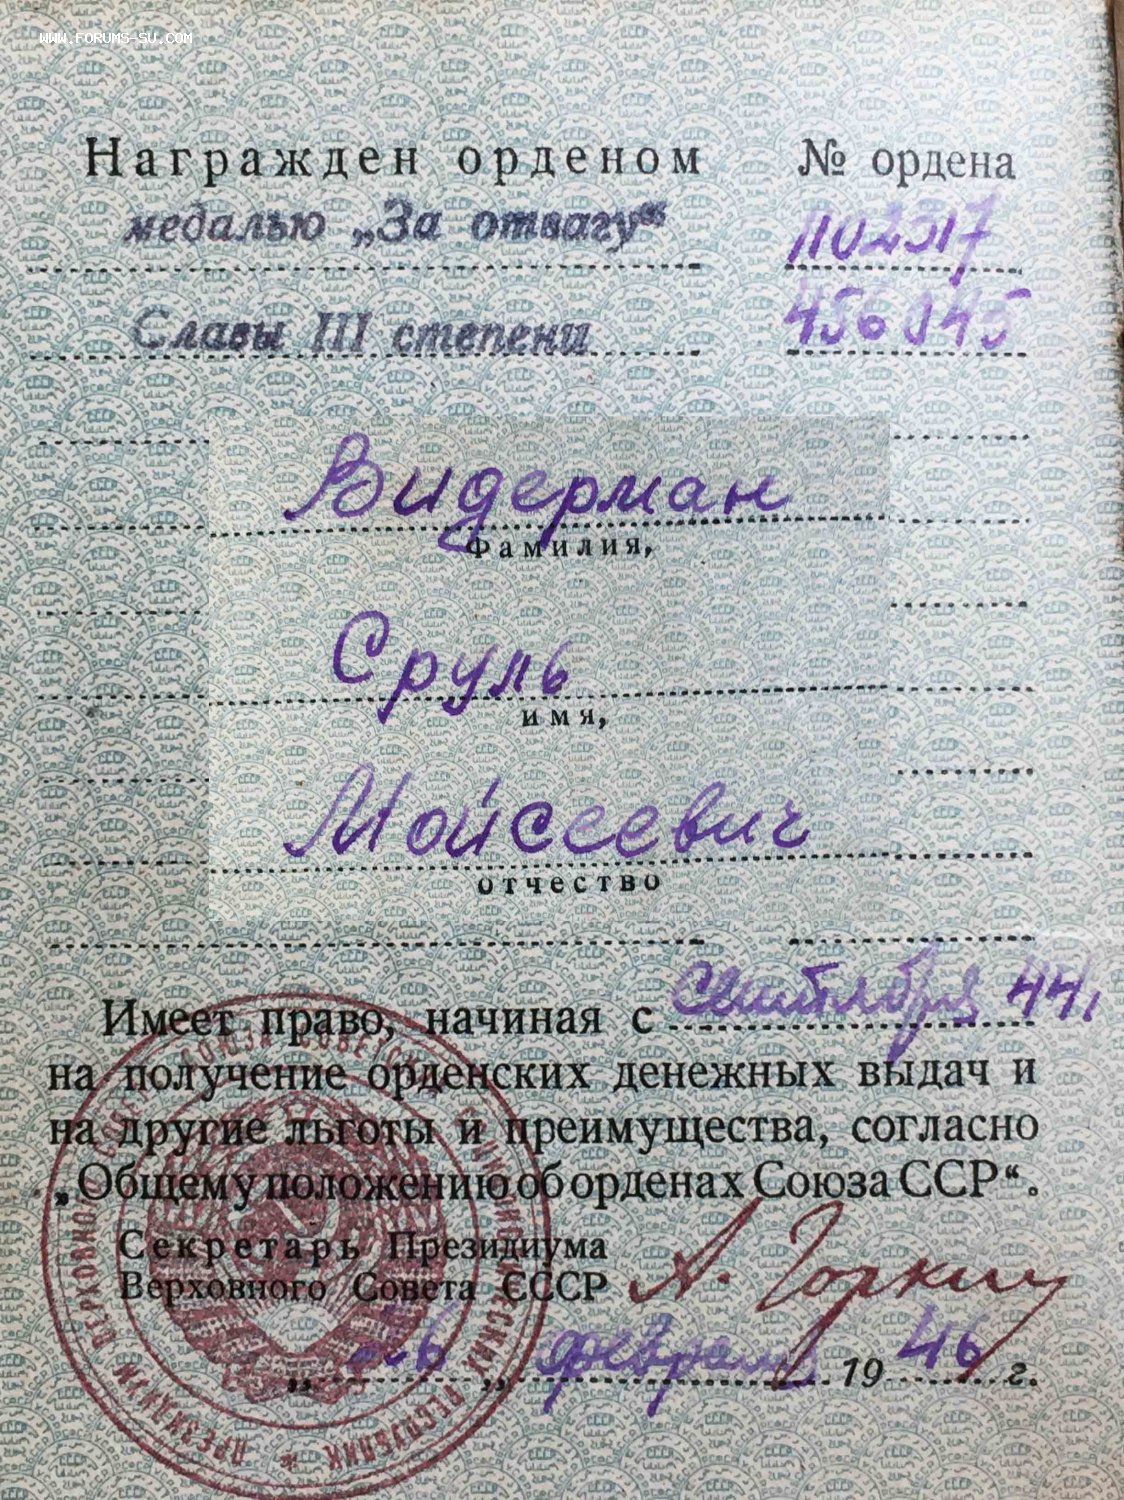 WWW.FORUMS-SU.COM
Награжден орденом № ордена
медалью „За отвагу“ 1102517
Славы III степени 456045
Видерман
Фамилия,
Сруль
имя,
Мойсеевич
отчество
Имеет право, начиная с сентября 44г
на получение орденских денежных выдач и
на другие льготы и преимущества, согласно
„Общему положению об орденах Союза ССР“.
Секретарь Президиума
Верховного Совета СССР А. Горкин
„26„ февраля 1946 г.
ПРЕЗИДИУМ ВЕРХОВНОГО СОВЕТА СОЮЗА СОВЕТСКИХ СОЦИАЛИСТИЧЕСКИХ РЕСПУБЛИК